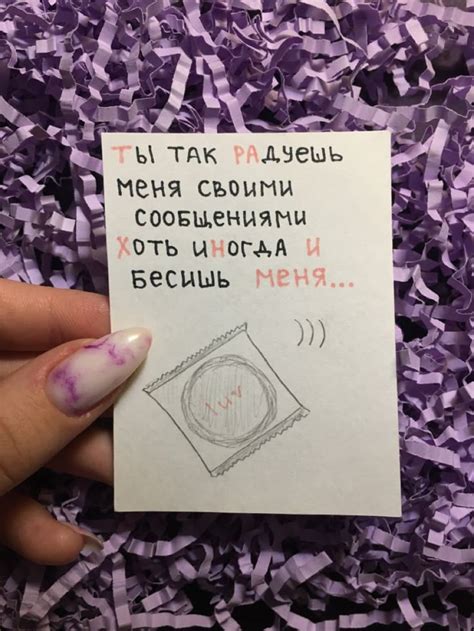 Ты так радуешь
меня своими
сообщениями
Хоть иногда и
бесишь меня...
)))
luv